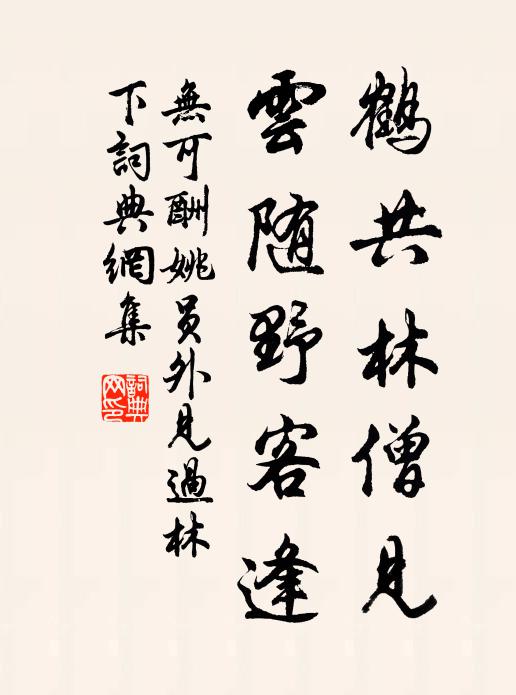 鶴共林僧見
雲随野客逢
無可酬姚員外見過林
下詞典網集
詞典
网印